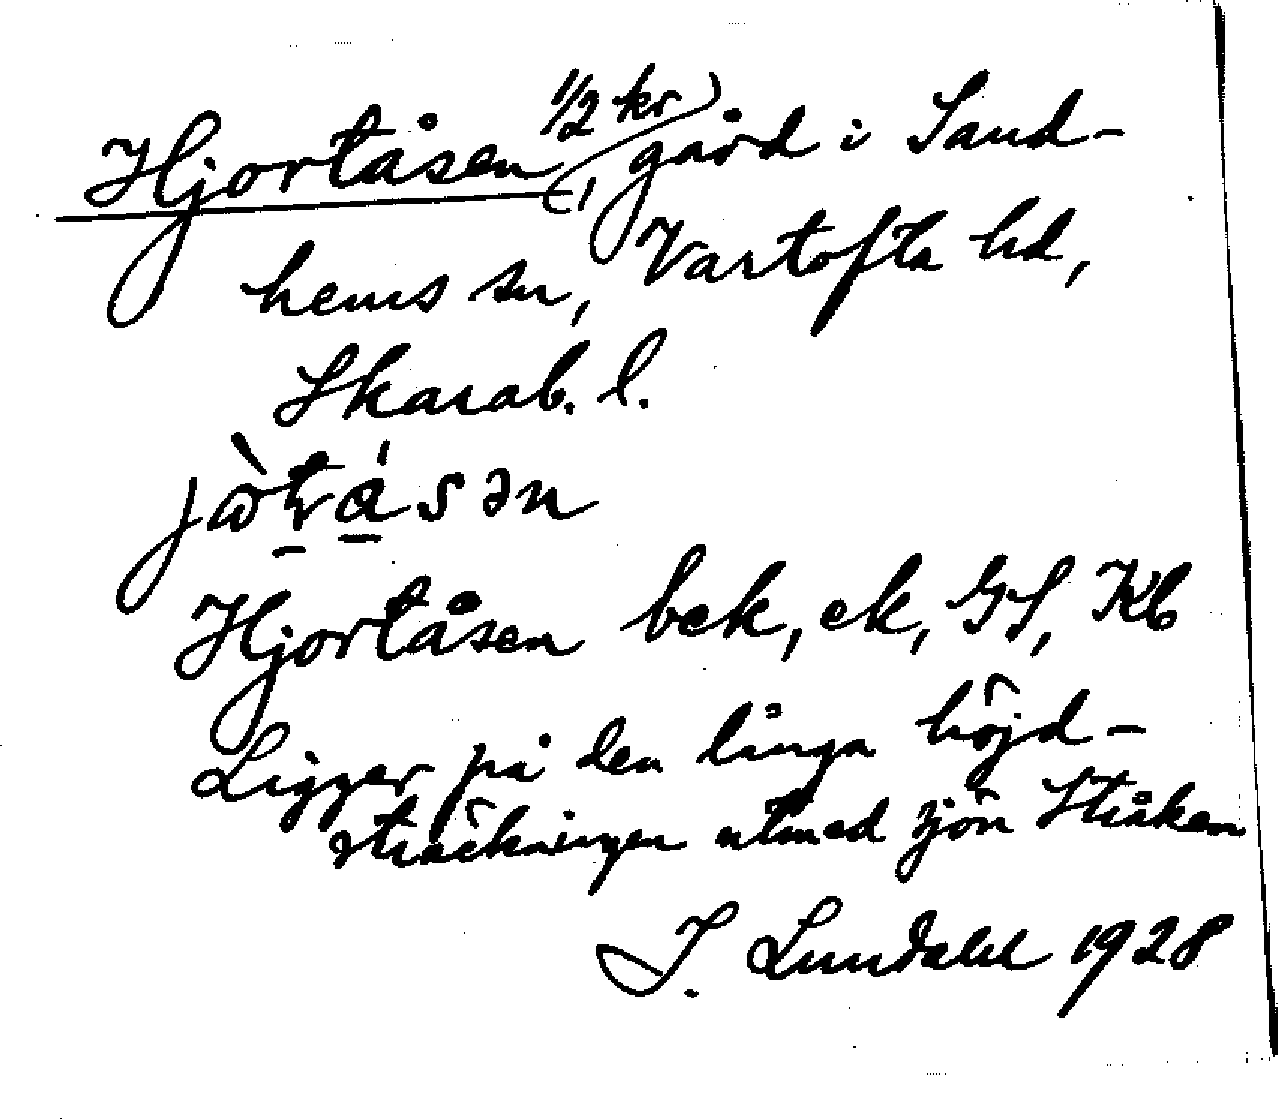 Hjortåsen (1/2 kr), gård i Sand-
hems sn, Vartofta hd,
Skarab. l.
Hjortåsen bek, ek, GS, Kb
Ligger på den långa höjd-
sträckningen utmed sjön Stråken
J. Lundahl 1928